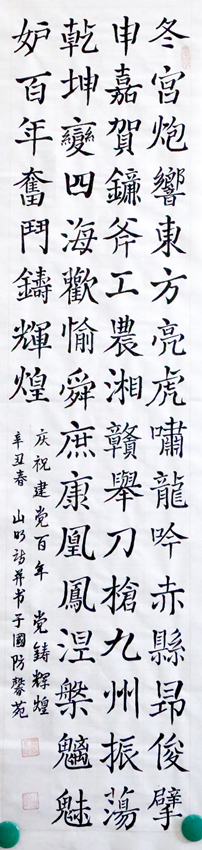 冬宫炮響東方亮虎嘯龍吟赤縣昂俊擘
申嘉賀鐮斧工農湘贛舉刀槍九州振蕩
乾坤變四海歡愉舜庶康凰鳳涅槃魑魅
妒百年奮鬥鑄輝煌
庆祝建党百年 党铸辉煌
辛丑春 山明诗并书于國防馨苑